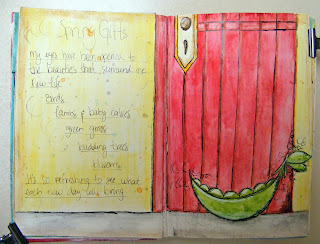 Spring Gifts
My eyes have been opened to
the beauties that surround me
new life
birds
lambs & baby calves
green grass
budding trees
blooms
It's so refreshing to see what
each new day will bring